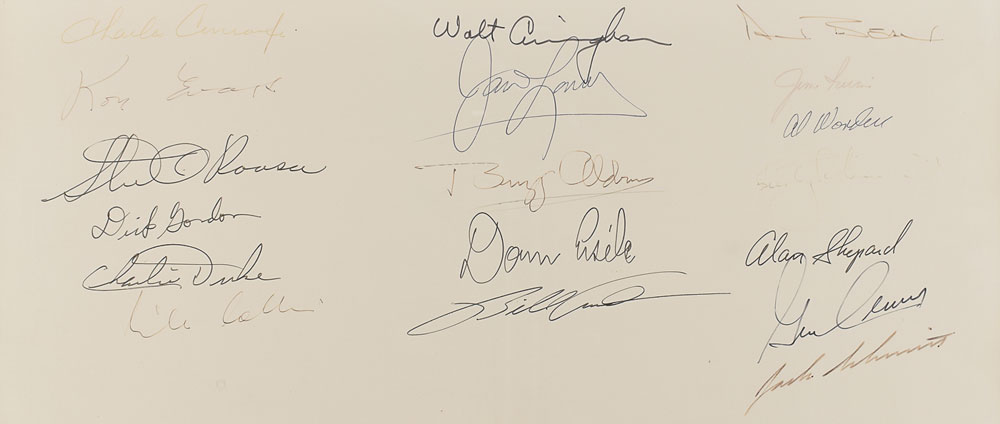 Charlie
Ron Evans
Stu Roosa
Dick Gordon
Charlie Duke
Mike Collins
Walt Cunningham
Jim Lovell
Buzz Aldrin
Donn Eisele
Bill Anders
Al Bean
Jim Irwin
Al Worden
Alan Shepard
Gene Cernan
Jack Schmitt